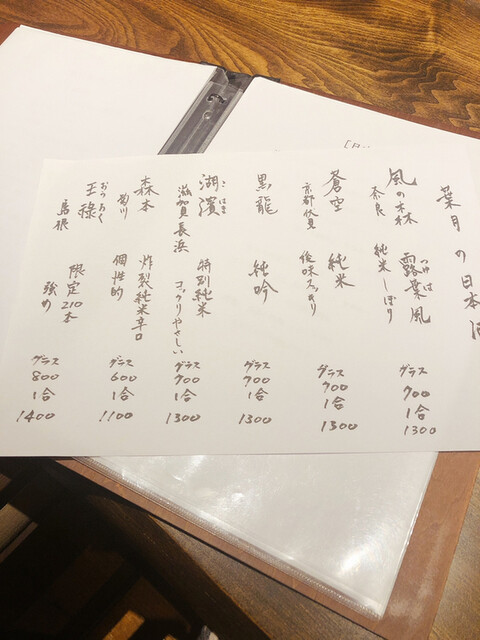 葉月の日本酒
風の森 露葉風
つゆ は
奈良 純米しぼり
グラス
900
1合
1300
蒼空 純米
京都伏見 後味スッキリ
グラス
700
1合
1300
黒龍 純吟
グラス
700
1合
1300
こ はま
湖濱 特別純米
滋賀長浜 コックリやさしい
グラス
700
1合
1300
森本 炸裂純米辛口
菊川 個性的
グラス
600
1合
1100
おうろく
王祿 限定210本
島根 強め
グラス
800
1合
1400